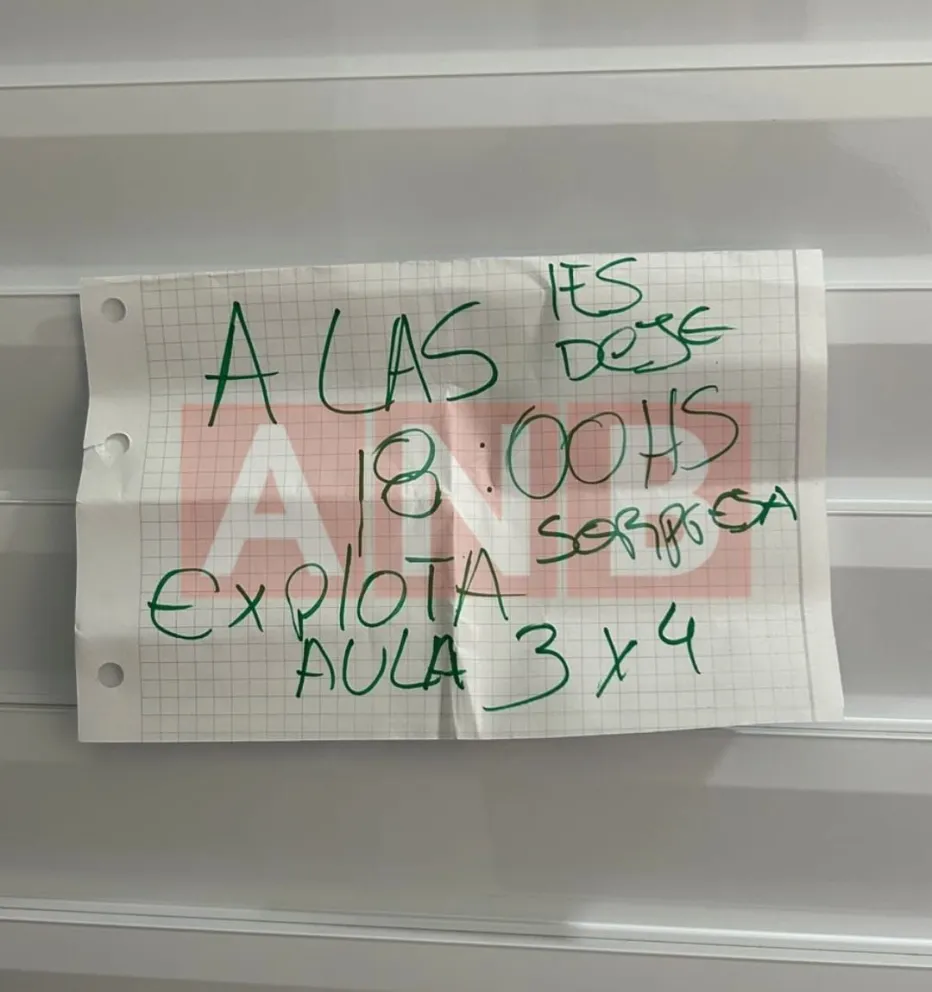 A LAS
IES
DEJE
18:00HS
SORPRESA
EXPLOTA
AULA 3 x 4
ANB